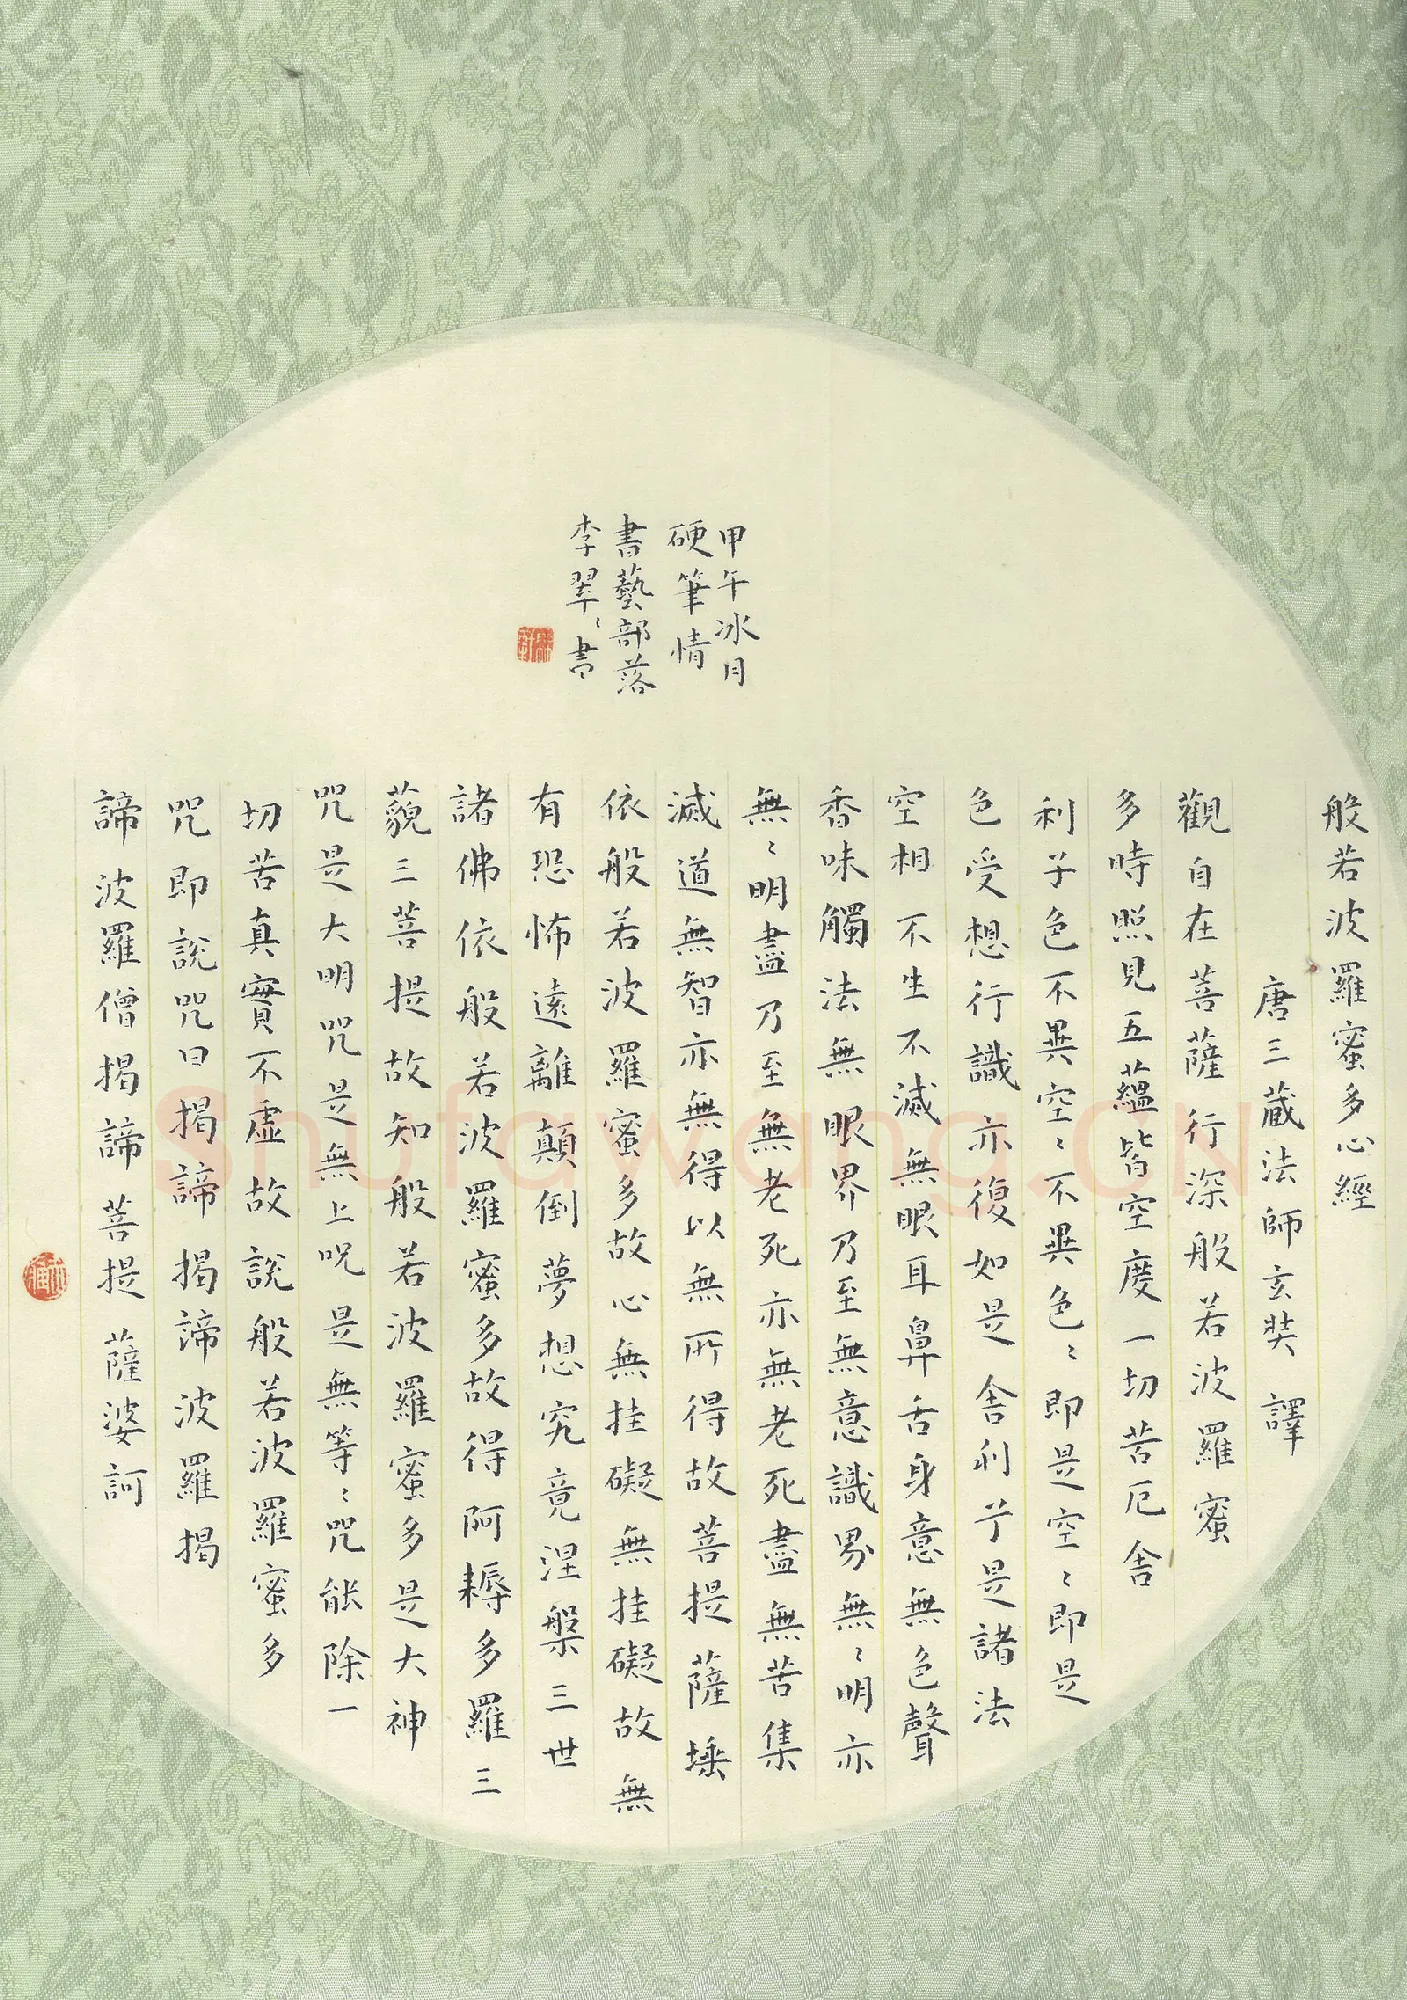 般若波羅蜜多心經
唐三藏法師玄奘譯
觀自在菩薩行深般若波羅蜜
多時照見五蘊皆空度一切苦厄舍
利子色不異空〻不異色〻即是空〻即是
色受想行識亦復如是舍利子是諸法
空相不生不滅無眼耳鼻舌身意無色聲
香味觸法無眼界乃至無意識界無〻明亦
無〻明盡乃至無老死亦無老死盡無苦集
滅道無智亦無得以無所得故菩提薩埵
依般若波羅蜜多故心無挂礙無挂礙故無
有恐怖遠離顛倒夢想究竟涅槃三世
諸佛依般若波羅蜜多故得阿耨多羅三
藐三菩提故知般若波羅蜜多是大神
咒是大明咒是無上咒是無等〻咒能除一
切苦真實不虛故說般若波羅蜜多
咒即說咒曰揭諦揭諦波羅揭
諦波羅僧揭諦菩提薩婆訶
甲午冰月
硬筆情
書藝部落
李翠〻書
Shufawang.CN